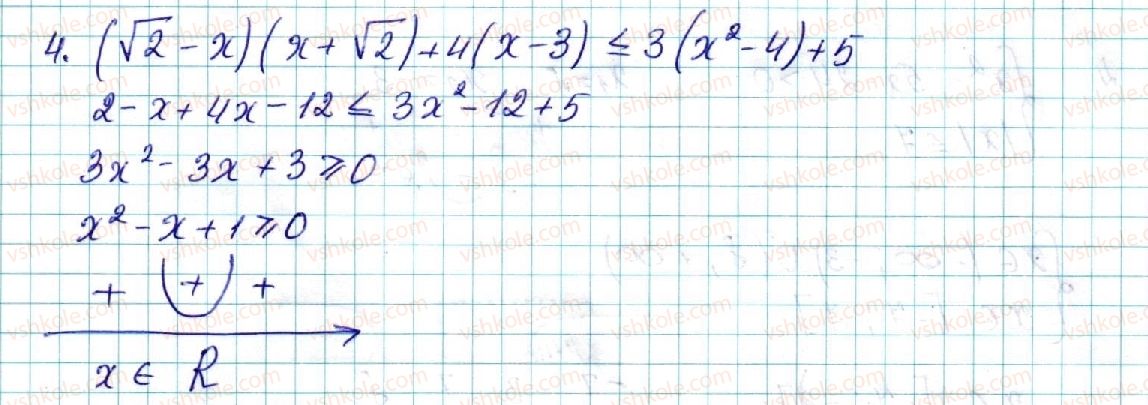 4. (√2 - x)(x + √2) + 4(x - 3) ≤ 3(x² - 4) + 5
2 - x + 4x - 12 ≤ 3x² - 12 + 5
3x² - 3x + 3 ⩾ 0
x² - x + 1 ⩾ 0
+ + +
x ∈ R
vshkole.com